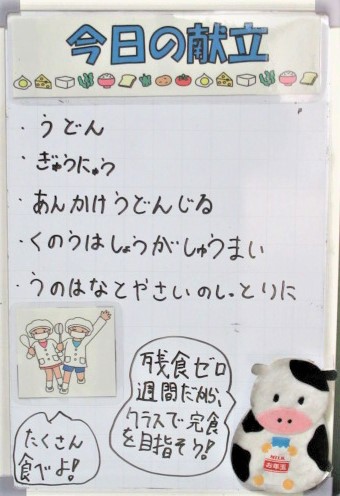 今日の献立
・うどん
・ぎゅうにゅう
・あんかけうどんじる
・くのうはしょうがしゅうまい
・うのはなとやさいのしっとりに
残食ゼロ
週間だから、
クラスで完食
を目指そう!
たくさん
食べよ!
MILK
お年玉